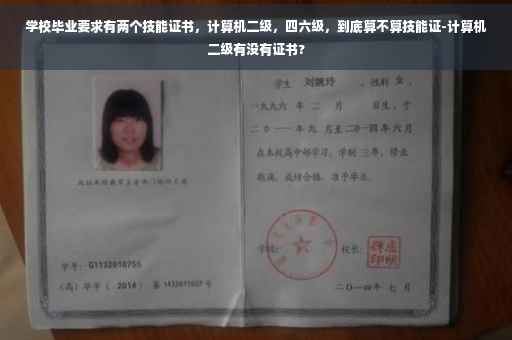 学校毕业要求有两个技能证书，计算机二级，四六级，到底算不算技能证-计算机
二级有没有证书？
学生 刘婉玲 ，性别 女 ，
一九九六 年 二 月 日生，于
二〇一一年九 月至二〇一四年六月
在本校高中部学习，学制 三年，修业
期满，成绩合格，准予毕业。
学校： 校长：
学号： G1132010755
（高）毕字（ 2014 ）第 1432011607 号
二〇一四年 七 月